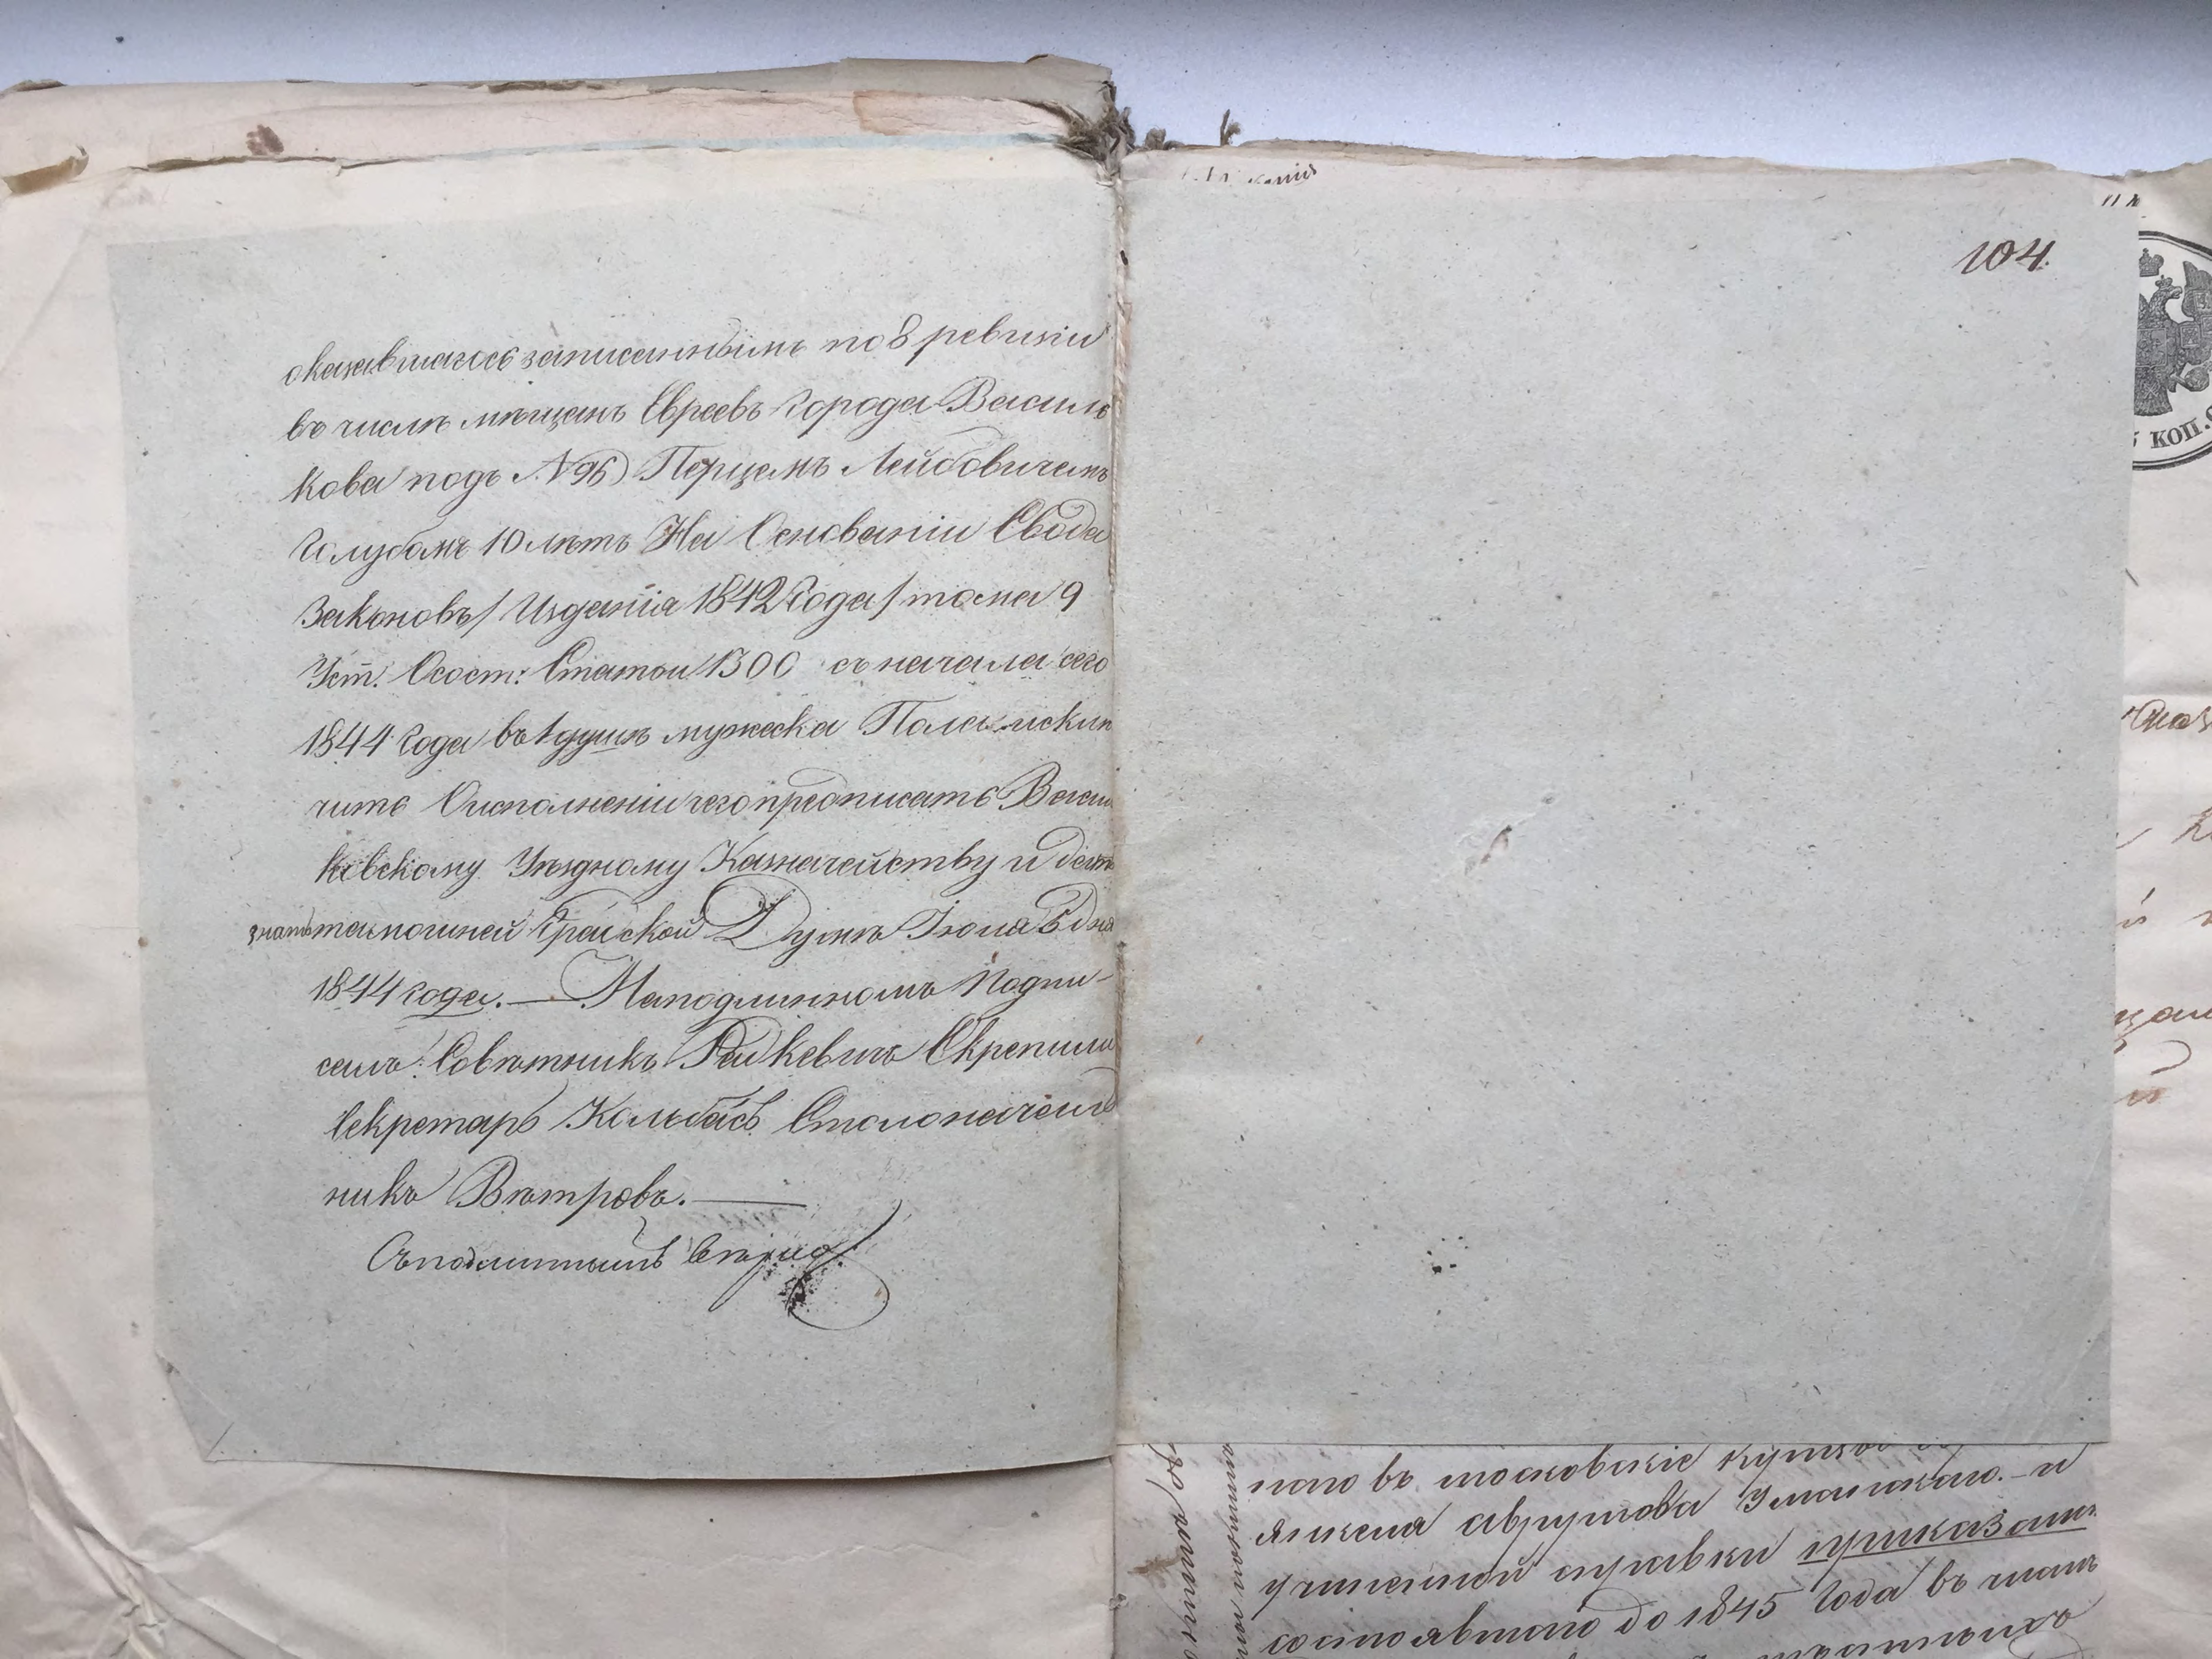 оказавшагось записаннымъ по 8 ревизіи
въ числѣ мѣщанъ Евреевъ города Василь
кова подъ №96) Перцемъ Лейбовичемъ
Голубомъ 10 лѣтъ На Основаніи Свода
Законовъ / Изданія 1842 Года / тома 9
Уст. Осост: Статьи 1300 съ начала сего
1844 Года въ 1 душѣ мужеска Пола исклю
чить О исполненіи чего предписать Василь
ковскому Уѣздному Казначейству и дать
знать тамошней Градской Думѣ Іюля 5 дня
1844 года. — На подлинномъ Подпи-
салъ: Совѣтникъ Рашкевичъ Скрепили
Секретарь Колбасъ Столоначаль
никъ Вѣтровъ. —
Съ подлиннымъ вѣрно
104.
КОП.
въ московскіе купцы
Янкеля Аврумова Уманскаго. — и
учиненной справки приказали:
состоявшаго до 1845 Года въ